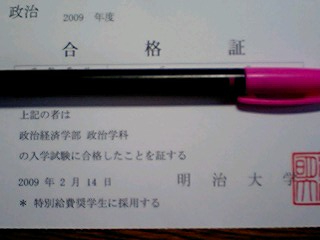 政治 2009 年度
合格証
上記の者は
政治経済学部 政治学科
の入学試験に合格したことを証する
2009 年 2 月 14 日 明治大学
* 特別給費奨学生に採用する